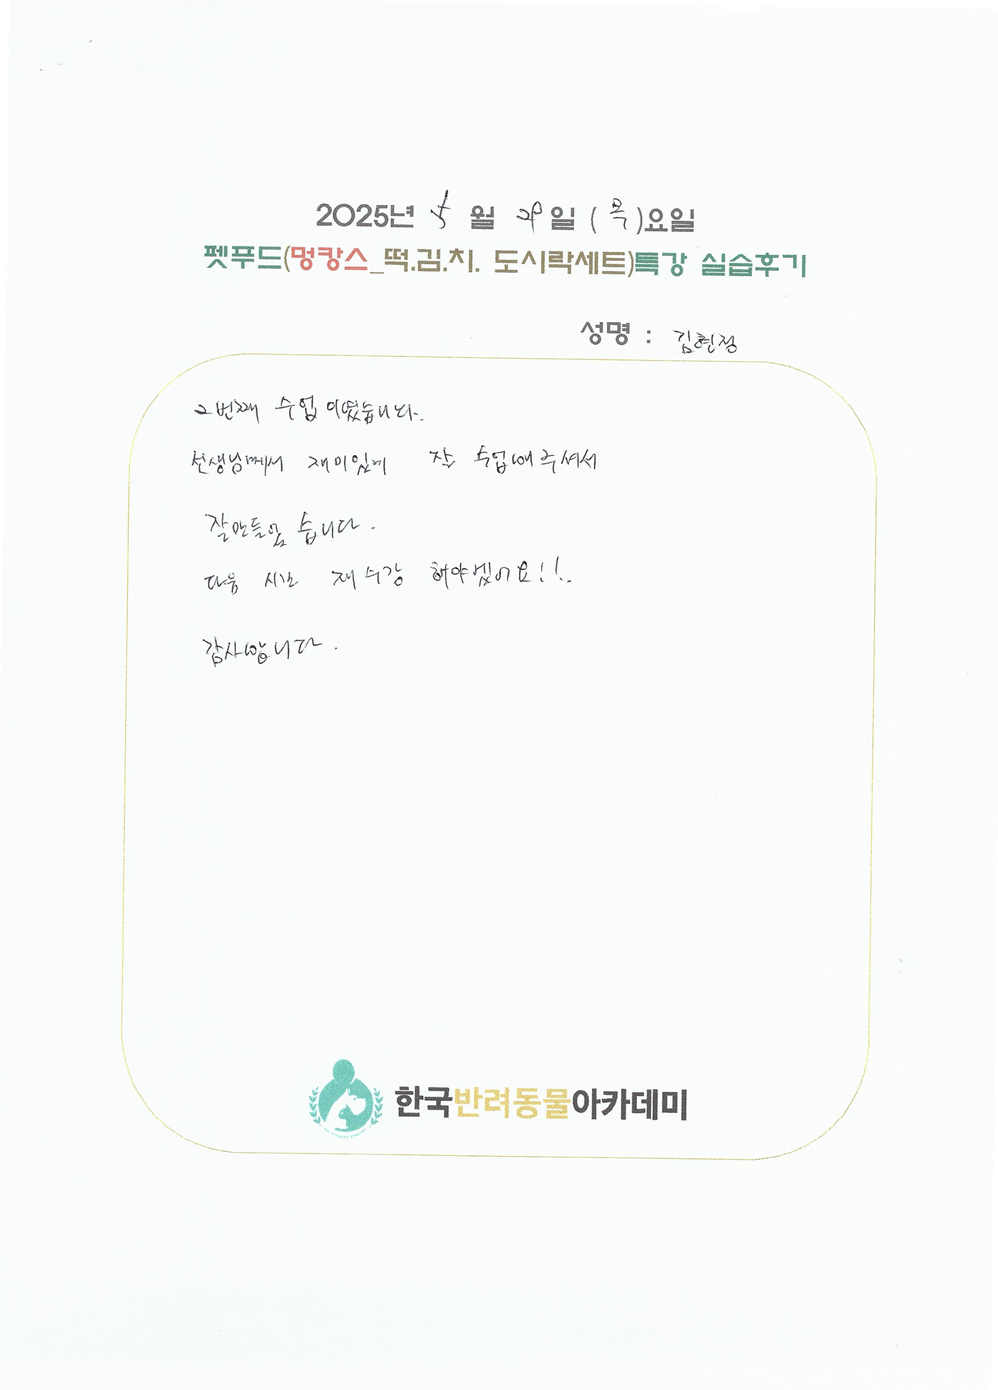 2025년 5 월 29 일 (목)요일
펫푸드(멍캉스_떡.김.치. 도시락세트)특강 실습후기
성명 : 김현정
2번째 수업이였습니다.
선생님께서 재미있게 잘 수업해주셔서
잘만들었습니다.
다음 시간 재수강 해야겠어요!!.
감사합니다.
한국반려동물아카데미